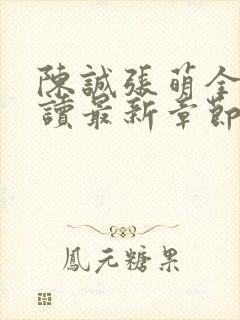 陳誠張萌全
讀最新章節
鳳元糖果